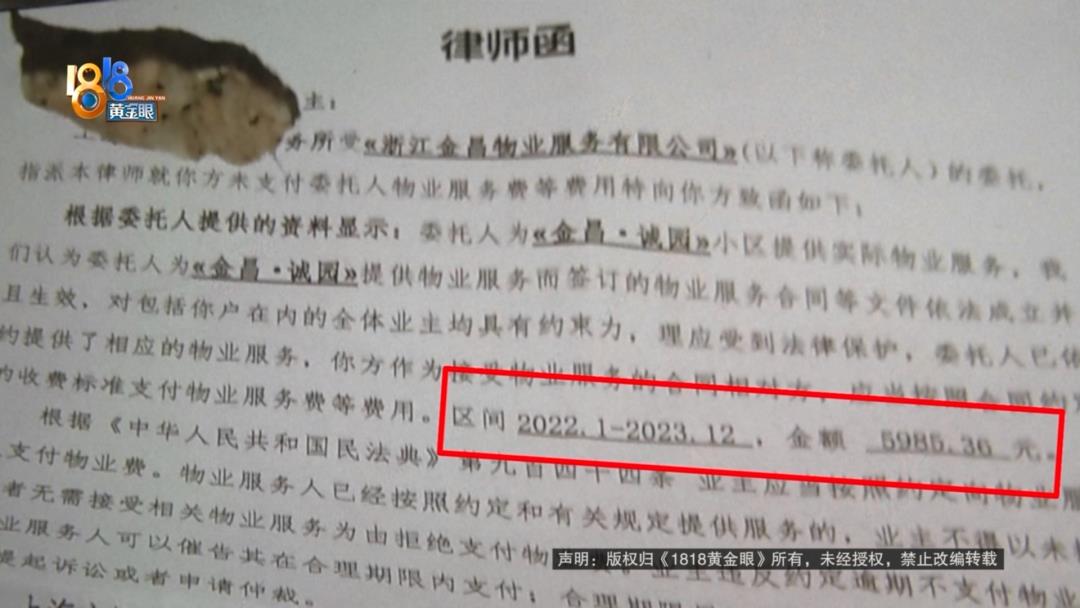 律师函
1818
黄金眼
HUANG JIN YAN
主：
务所受《浙江金昌物业服务有限公司》（以下称委托人）的委托，
指派本律师就你方未支付委托人物业服务费等费用特向你方致函如下：
根据委托人提供的资料显示：委托人为《金昌·诚园》小区提供实际物业服务，我
们认为委托人为《金昌·诚园》提供物业服务而签订的物业服务合同等文件依法成立并
且生效，对包括你户在内的全体业主均具有约束力，理应受到法律保护，委托人已依
约提供了相应的物业服务，你方作为接受物业服务的合同相对方，应当按照合同约定
的收费标准支付物业服务费等费用。区间 2022.1-2023.12 ，金额 5985.36 元。
根据《中华人民共和国民法典》第九百四十四条 业主应当按照约定向物业服
支付物业费。物业服务人已经按照约定和有关规定提供服务的，业主不得以未接
者无需接受相关物业服务为由拒绝支付物业
业服务人可以催告其在合理期限内支付；合理期限
提起诉讼或者申请仲裁。
业主违反约定逾期不支付物业
声明：版权归《1818黄金眼》所有，未经授权，禁止改编转载